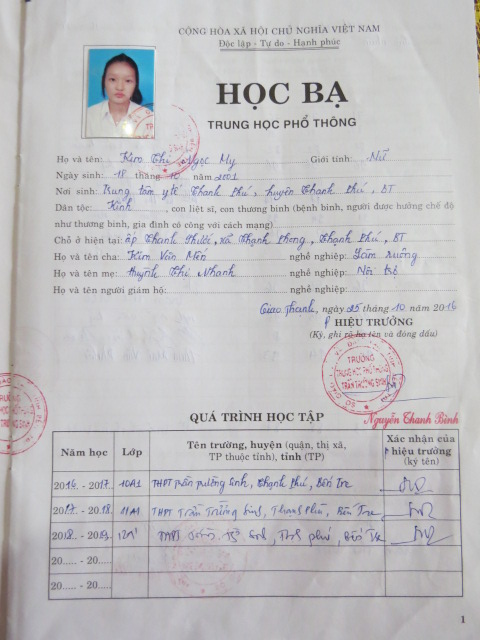 CỘNG HÒA XÃ HỘI CHỦ NGHĨA VIỆT NAM
Độc lập - Tự do - Hạnh phúc
HỌC BẠ
TRUNG HỌC PHỔ THÔNG
Họ và tên: Kim Thị Ngọc My Giới tính: Nữ
Ngày sinh: 18 tháng 10 năm 2001
Nơi sinh: Trung tâm y tế Thạnh Phú, huyện Thạnh Phú, BT
Dân tộc: Kinh, con liệt sĩ, con thương binh (bệnh binh, người được hưởng chế độ
như thương binh, gia đình có công với cách mạng)
Chỗ ở hiện tại: ấp Thạnh Phước, xã Thạnh Phong, Thạnh Phú, BT
Họ và tên cha: Kim Văn Mến nghề nghiệp: Làm ruộng
Họ và tên mẹ: Huỳnh Thị Nhanh nghề nghiệp: Nội trợ
Họ và tên người giám hộ: nghề nghiệp:
Giao Thạnh, ngày 25 tháng 10 năm 2016
P HIỆU TRƯỞNG
(Ký, ghi rõ họ tên và đóng dấu)
TRƯỜNG
TRUNG HỌC PHỔ THÔNG
TRẦN TRƯỜNG SINH
Nguyễn Thanh Bình
QUÁ TRÌNH HỌC TẬP
Năm học Lớp Tên trường, huyện (quận, thị xã, TP thuộc tỉnh), tỉnh (TP) Xác nhận của P hiệu trưởng (ký tên)
2016 - 2017 10A1 THPT Trần Trường Sinh, Thạnh Phú, Bến Tre
2017 - 2018 11A1 THPT Trần Trường Sinh, Thạnh Phú, Bến Tre
2018 - 2019 12A1 THPT Sinh, Phú, Bến Tre
20..... - 20.....
20..... - 20.....
1